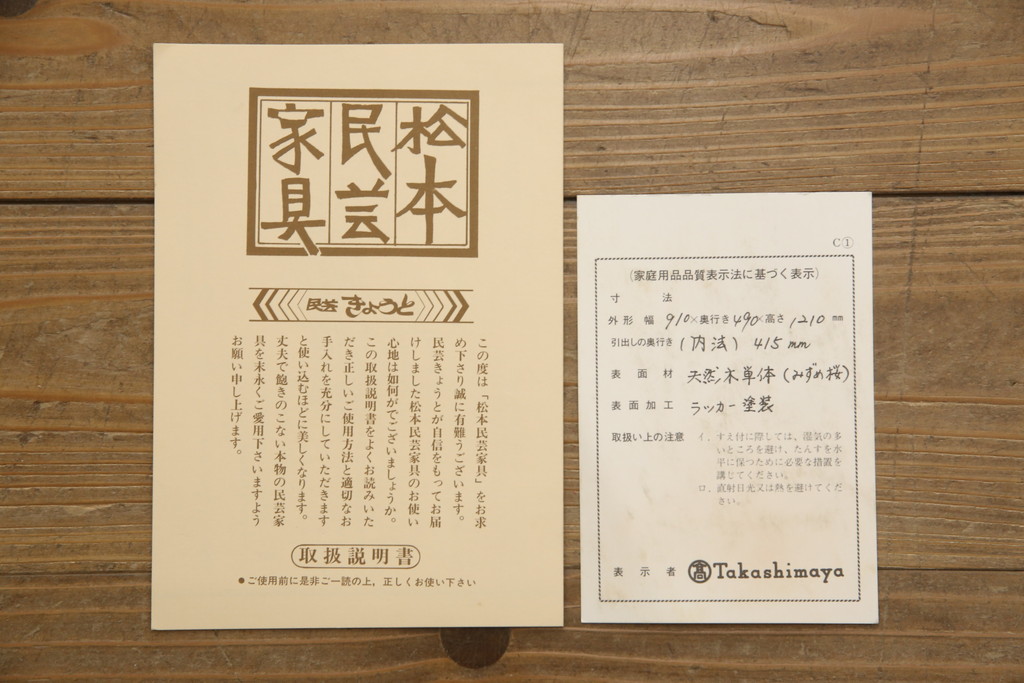 松本
民芸
家具
民芸きょうと
この度は「松本民芸家具」をお求
め下さり誠に有難うございます。
民芸きょうとが自信をもってお届
けしました松本民芸家具のお使い
心地は如何がでございましょうか。
この取扱説明書をよくお読みいた
だき正しいご使用方法と適切なお
手入れを充分にしていただきます
と使い込むほどに美しくなります。
丈夫で飽きのこない本物の民芸家
具を末永くご愛用下さいますよう
お願い申し上げます。
取扱説明書
●ご使用前に是非ご一読の上，正しくお使い下さい
C①
（家庭用品品質表示法に基づく表示）
寸法
外形 幅 910×奥行き490×高さ1210 mm
引出しの奥行き （内法） 415 mm
表面材 天然木単体（みずめ桜）
表面加工 ラッカー塗装
取扱い上の注意 イ．すえ付に際しては、湿気の多
いところを避け、たんすを水
平に保つために必要な措置を
講じてください。
ロ．直射日光又は熱を避けてくだ
さい。
表示者 髙Takashimaya